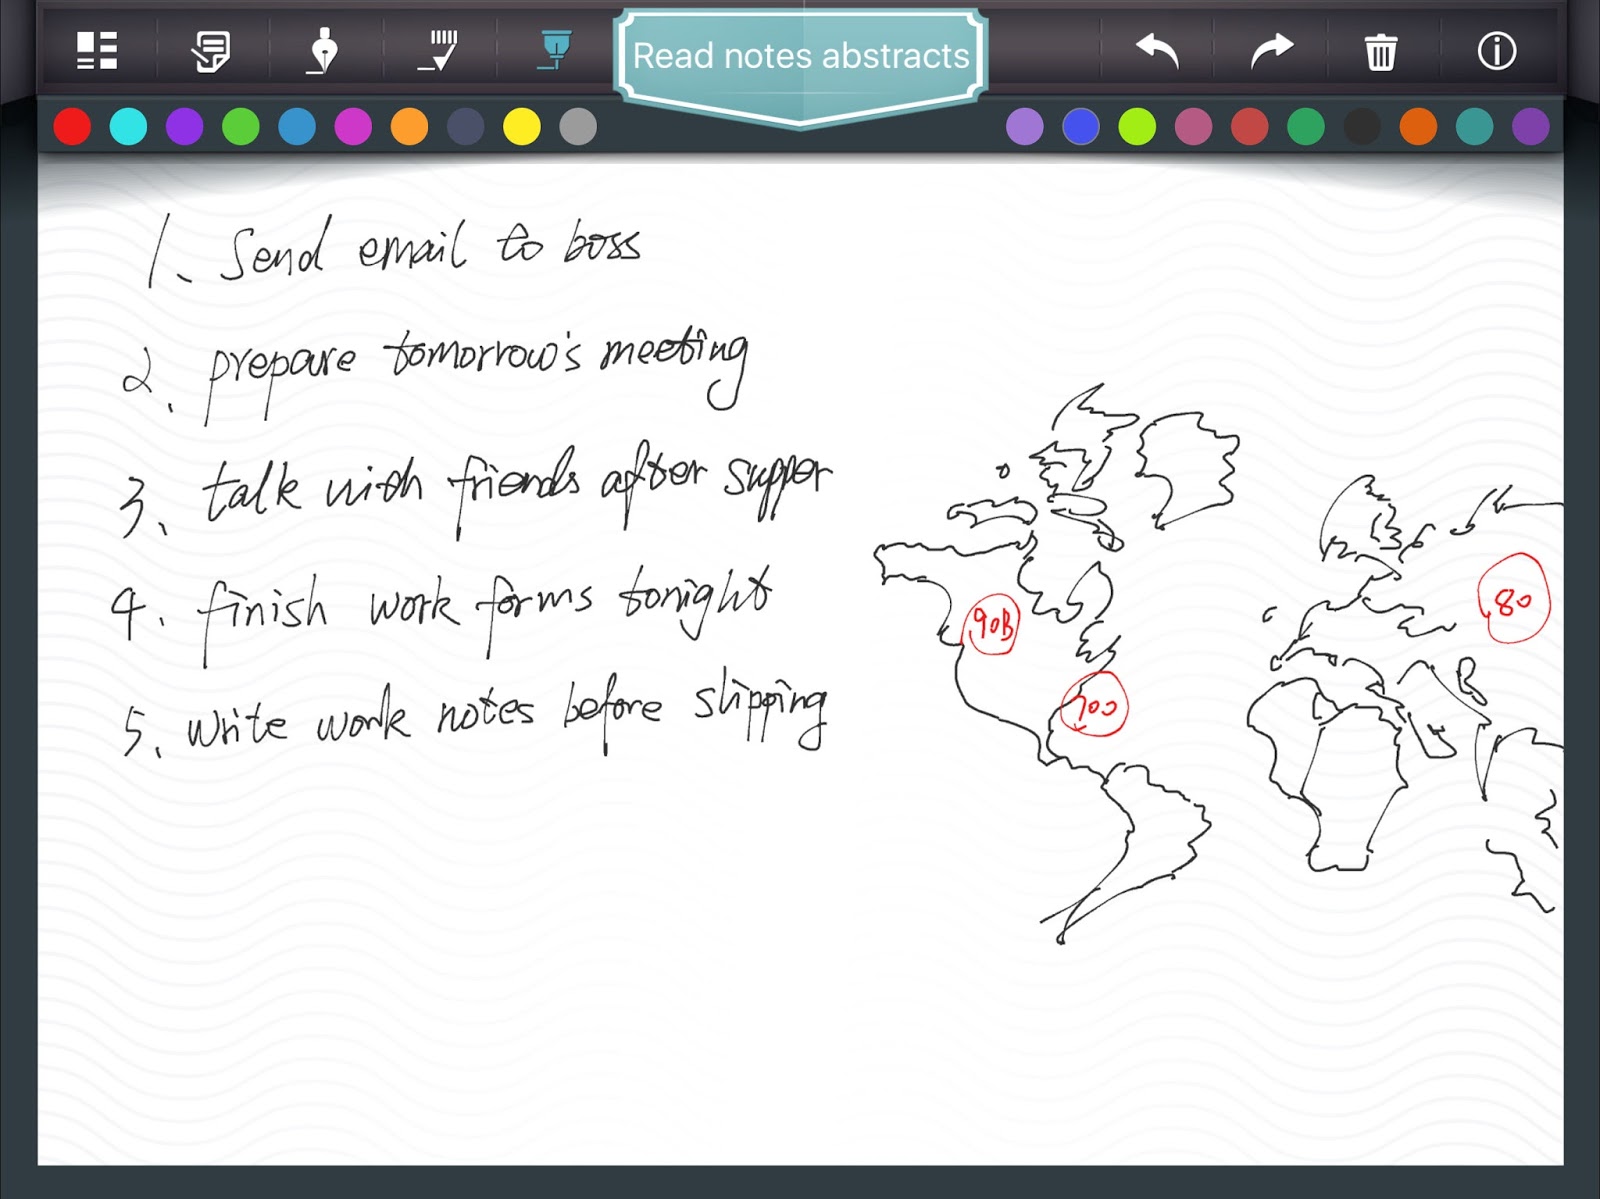 Read notes abstracts
1. Send email to boss
2. prepare tomorrow's meeting
3. talk with friends after supper
4. finish work forms tonight
5. write work notes before slipping
90B
80
100